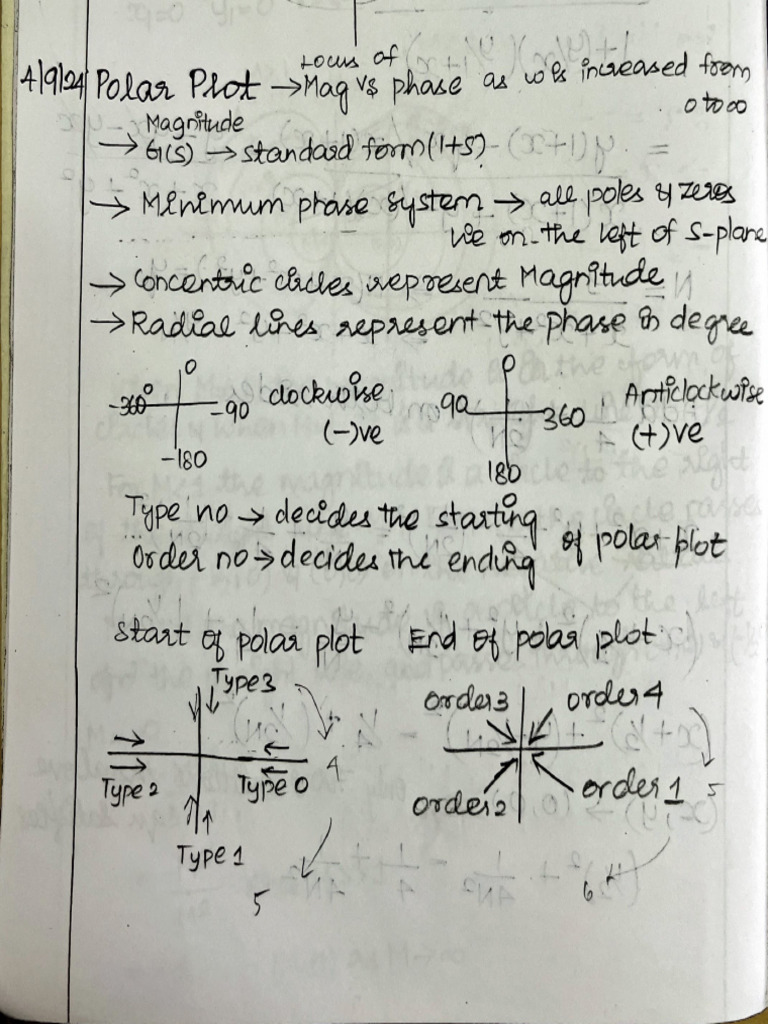 Locus of
4/9/24 Polar Plot → Mag vs phase as w is increased from
0 to ∞
Magnitude
→ G(s) → standard form (1+s)
→ Minimum phase system → all poles & zeros
lie on the left of S-plane
→ Concentric circles represent Magnitude
→ Radial lines represent the phase in degree
0 0
-360° -90 clockwise 90 360 Anticlockwise
(-)ve (+)ve
-180 180
Type no → decides the starting
Order no → decides the ending of polar plot
Start of polar plot End of polar plot
Type 3 order 3 order 4
Type 2 Type 0 4 order 2 order 1 5
Type 1
5 6